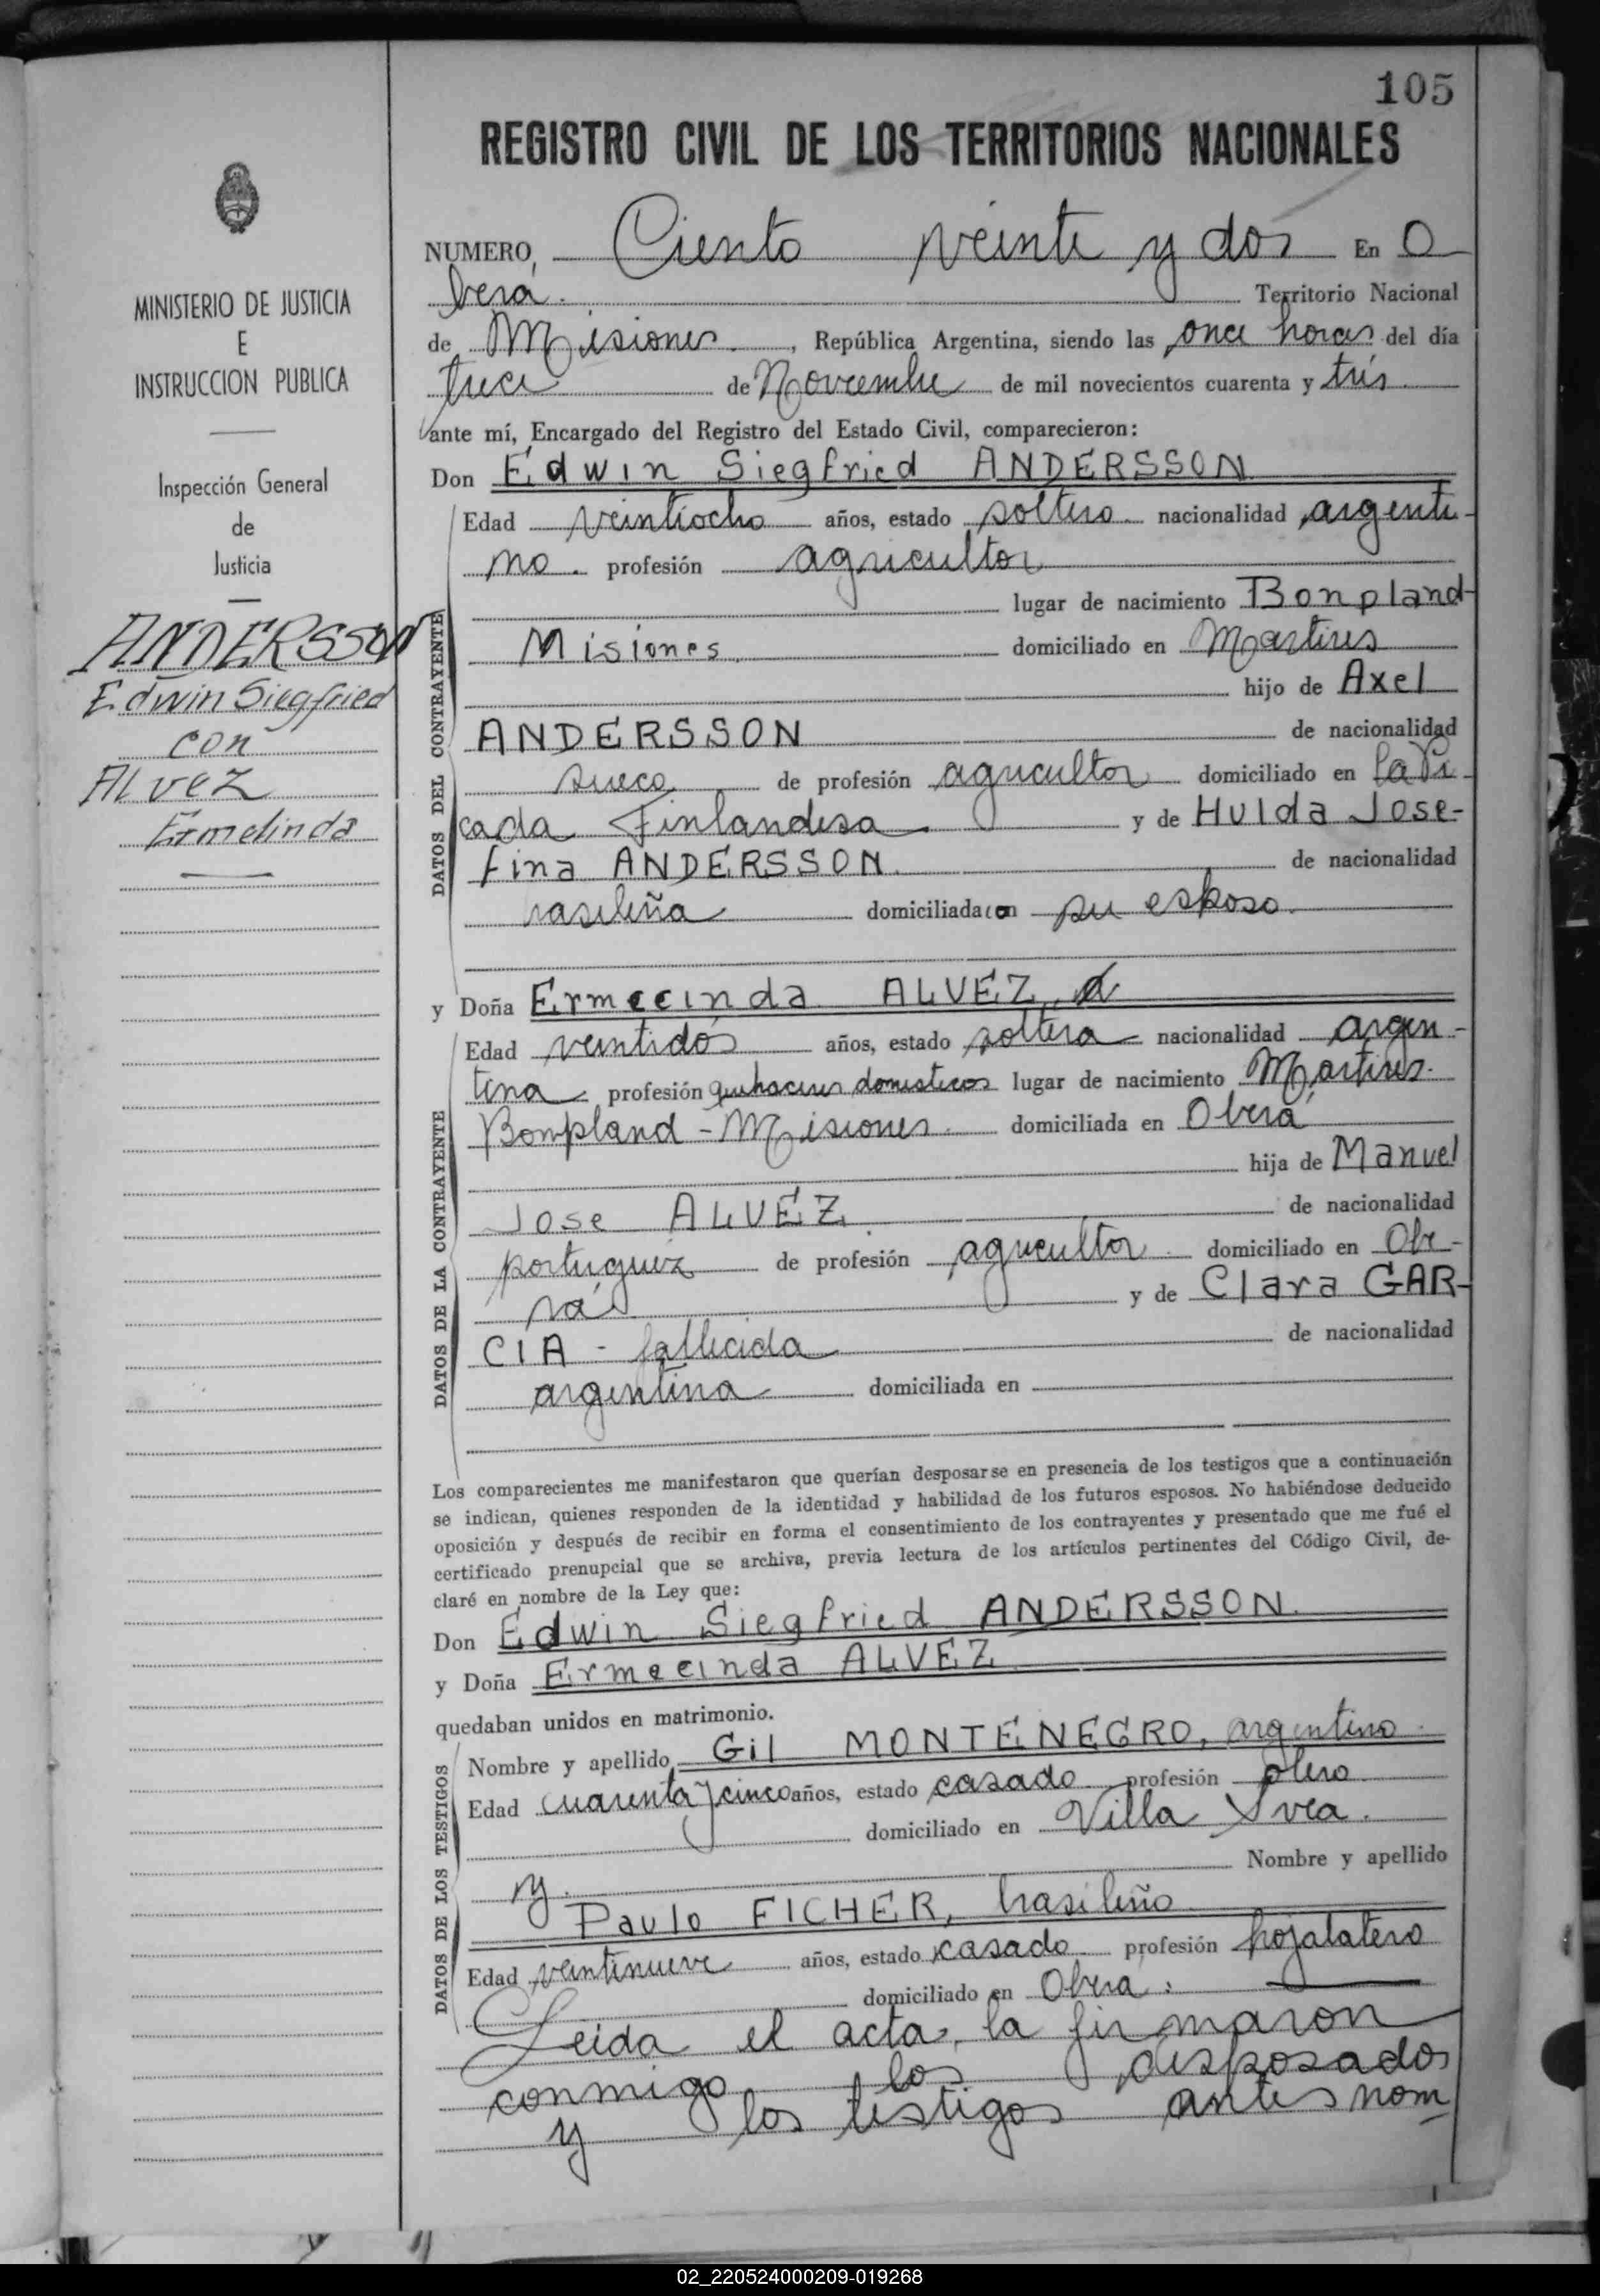 105
REGISTRO CIVIL DE LOS TERRITORIOS NACIONALES
MINISTERIO DE JUSTICIA
E
INSTRUCCION PUBLICA
Inspección General
de
Justicia
ANDERSSON
Edwin Siegfried
con
ALVEZ
Ermelinda
NUMERO, Ciento veinte y dos En O
berá. Territorio Nacional
de Misiones. , República Argentina, siendo las once horas del día
trece de Noviembre de mil novecientos cuarenta y tres
ante mí, Encargado del Registro del Estado Civil, comparecieron:
Don Edwin Siegfried ANDERSSON
Edad veintiocho años, estado soltero nacionalidad argenti-
no. profesión agricultor
lugar de nacimiento Bonpland-
Misiones. domiciliado en Martires
hijo de Axel
ANDERSSON de nacionalidad
sueco de profesión agricultor domiciliado en la Pi-
cada Finlandesa y de Hulda Jose-
fina ANDERSSON. de nacionalidad
brasileña domiciliada con su esposo.
y Doña Ermecinda ALVEZ
Edad veintidós años, estado soltera nacionalidad argen-
tina profesión quehaceres domesticos lugar de nacimiento Martires.
Bompland - Misiones. domiciliada en Oberá
hija de Manuel
Jose ALVEZ. de nacionalidad
portuguéz de profesión agricultor domiciliado en Obe-
rá y de Clara GAR-
CIA - fallecida de nacionalidad
argentina domiciliada en
Los comparecientes me manifestaron que querían desposarse en presencia de los testigos que a continuación
se indican, quienes responden de la identidad y habilidad de los futuros esposos. No habiéndose deducido
oposición y después de recibir en forma el consentimiento de los contrayentes y presentado que me fué el
certificado prenupcial que se archiva, previa lectura de los artículos pertinentes del Código Civil, de-
claré en nombre de la Ley que:
Don Edwin Siegfried ANDERSSON.
y Doña Ermecinda ALVEZ
quedaban unidos en matrimonio.
Nombre y apellido Gil MONTENEGRO, argentino.
Edad cuarenta y cinco años, estado casado profesión
domiciliado en Villa Svea.
y. Nombre y apellido
Paulo FICHER, brasileño
Edad veintinueve años, estado casado profesión hojalatero
domiciliado en Oberá.
Leida el acta, la firmaron
conmigo los desposados
y los testigos antes nom
DATOS DEL CONTRAYENTE
DATOS DE LA CONTRAYENTE
DATOS DE LOS TESTIGOS
02_220524000209-019268